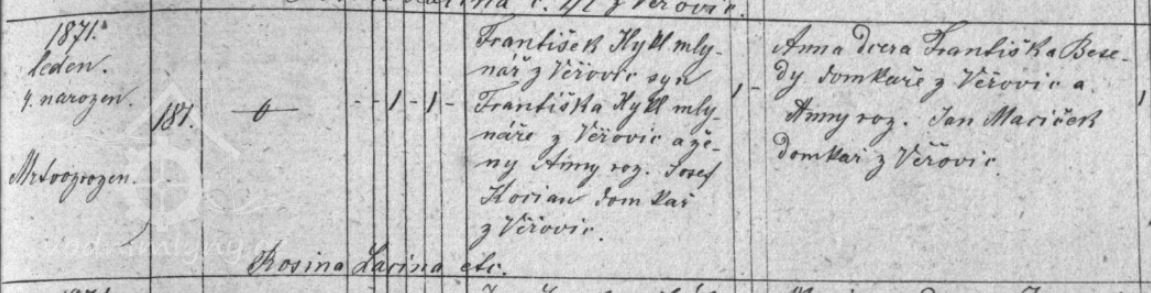 z Veřovic.
1871.
leden.
4. narozen.
Mrtvorozen.
181.
0
- - 1 - 1 -
František Hykl mly-
nář z Veřovic syn
Františka Hykl mly-
náře z Veřovic a že-
ny Anny roz. Josef
Horian domkař
z Veřovic.
1 -
Anna dcera Františka Bese-
dy domkaře z Veřovic a
Anny roz. Jan Maciček
domkař z Veřovic.
1
Rosina Lacina etc.